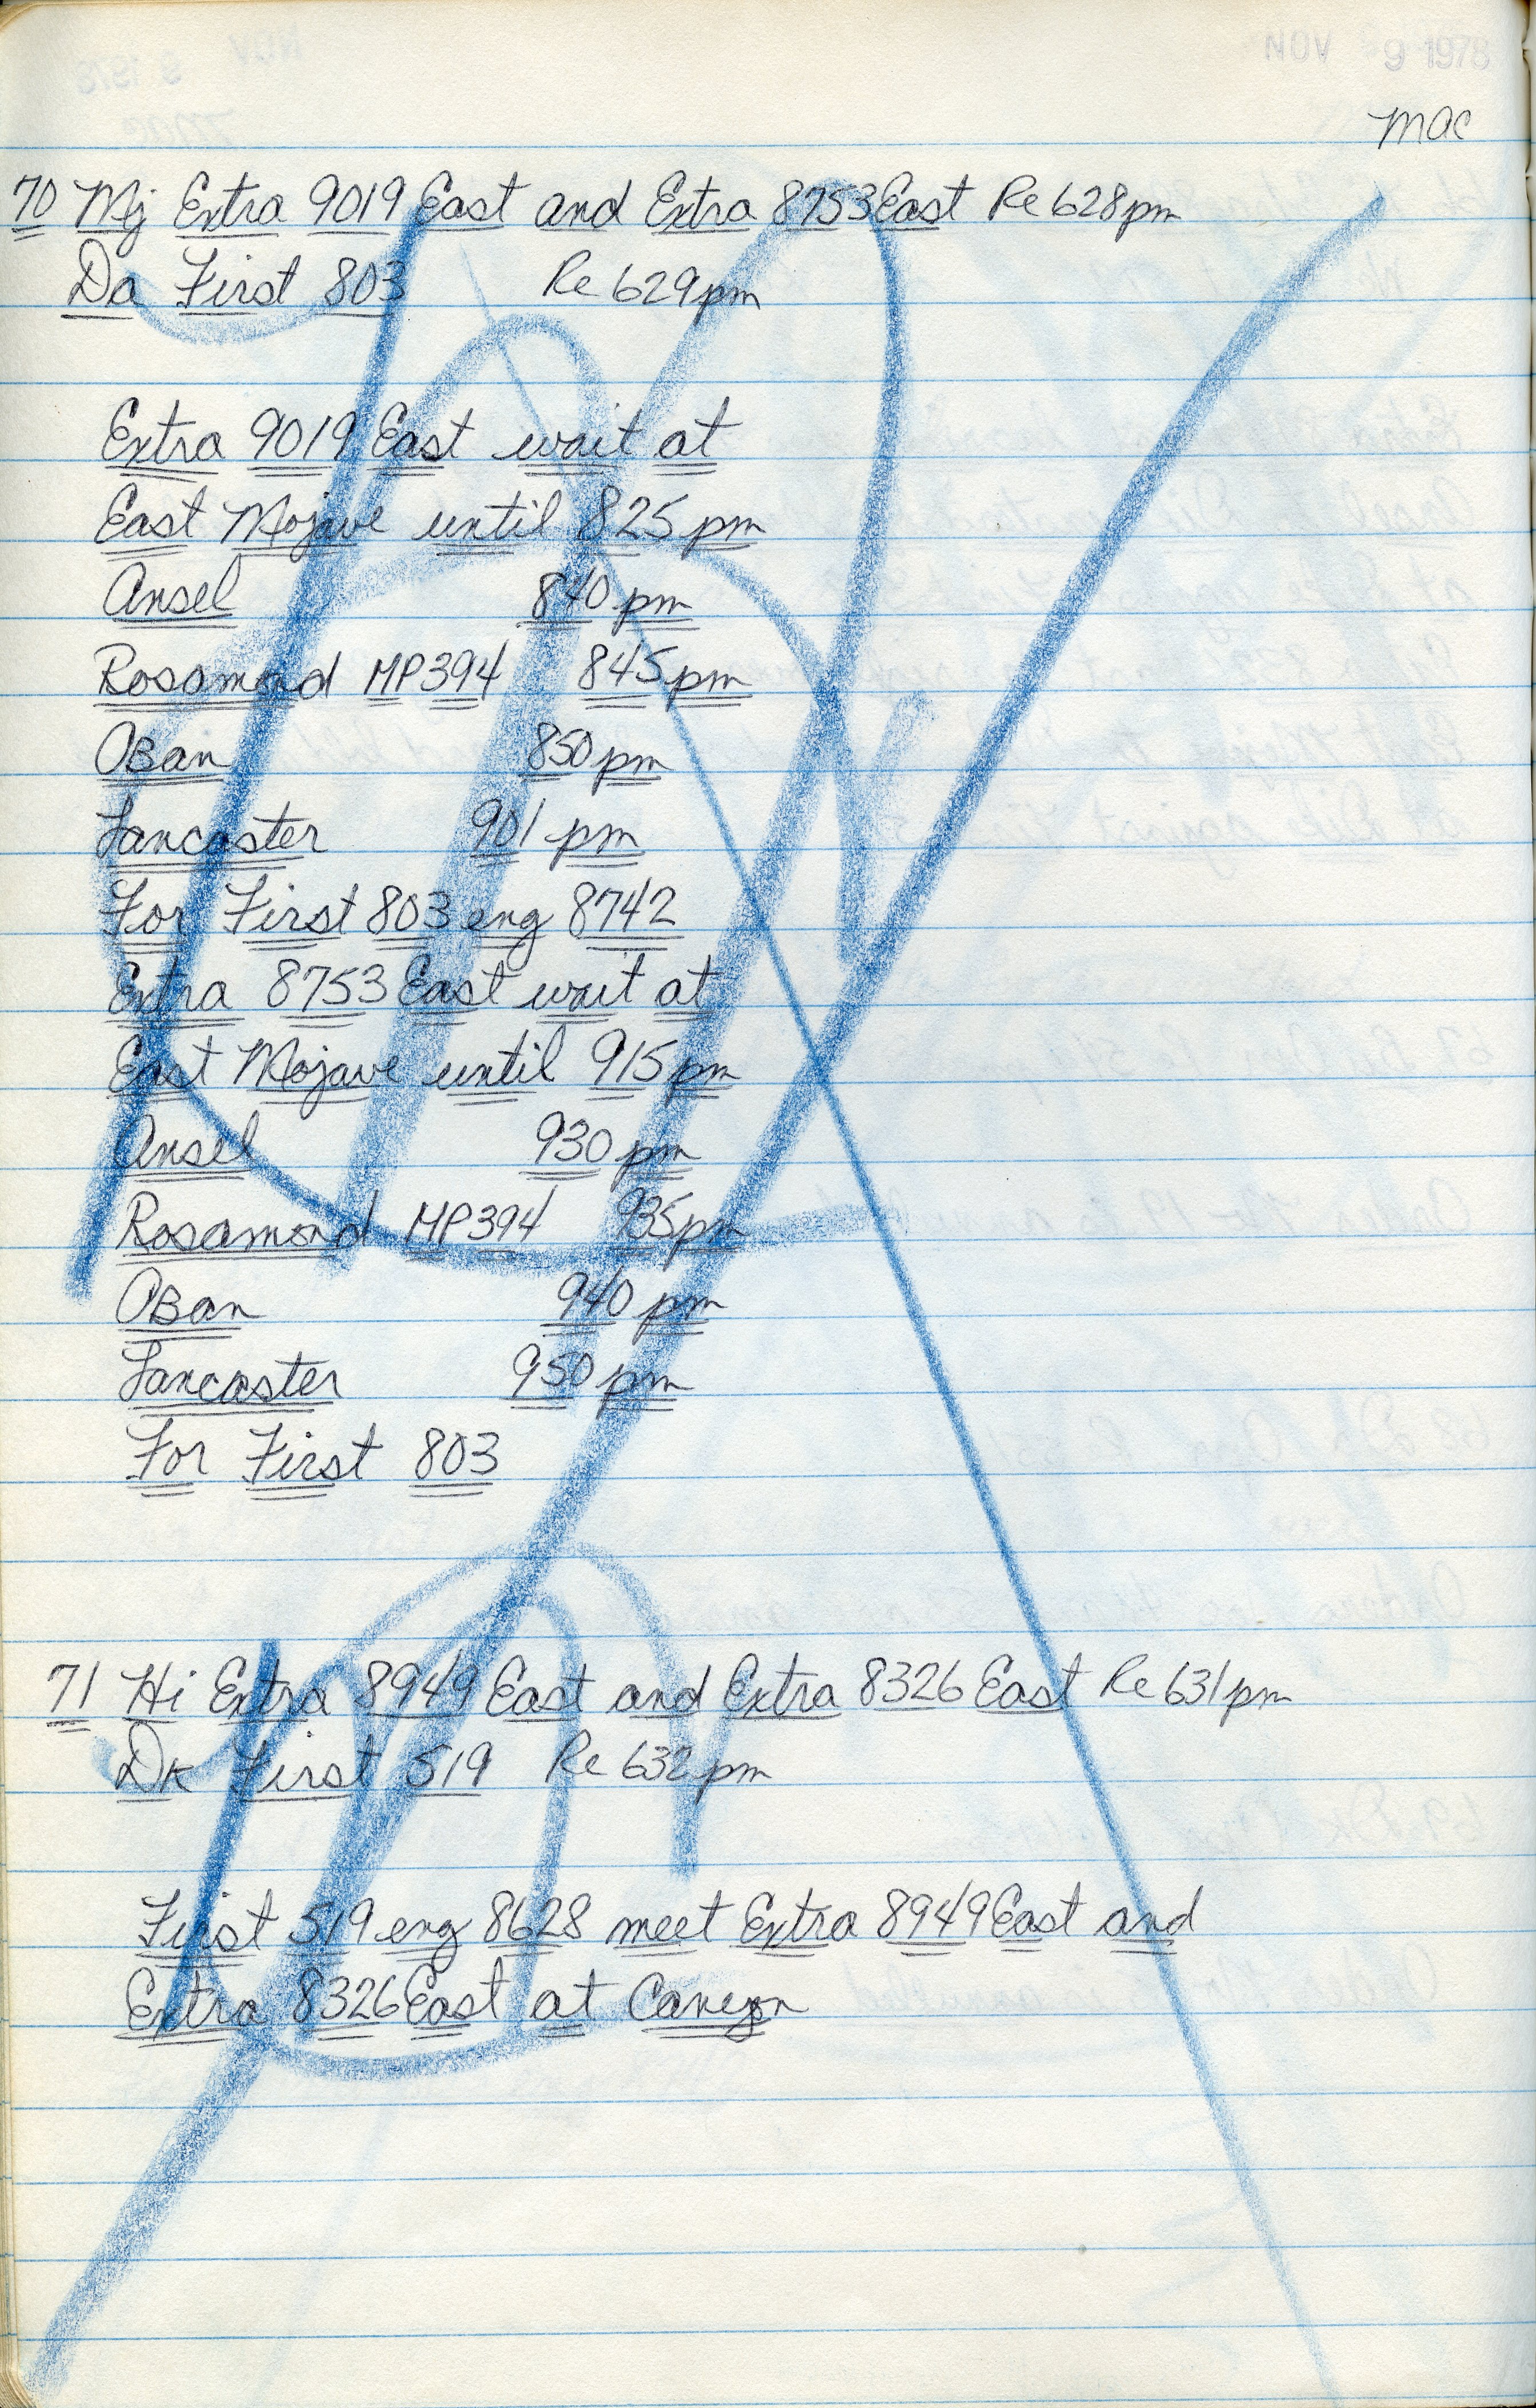 NOV 9 1978
mac
70 Mj Extra 9019 East and Extra 8753 East Re 628pm
Da First 803 Re 629pm
Extra 9019 East wait at
East Mojave until 825 pm
Ansel 840 pm
Rosamond MP394 845pm
Oban 850pm
Lancaster 901 pm
For First 803 eng 8742
Extra 8753 East wait at
East Mojave until 915pm
Ansel 930 pm
Rosamond MP394 935pm
Oban 940 pm
Lancaster 950 pm
For First 803
71 Hi Extra 8949 East and Extra 8326 East Re 631pm
Dk First 519 Re 632pm
First 519 eng 8628 meet Extra 8949 East and
Extra 8326 East at Canyon